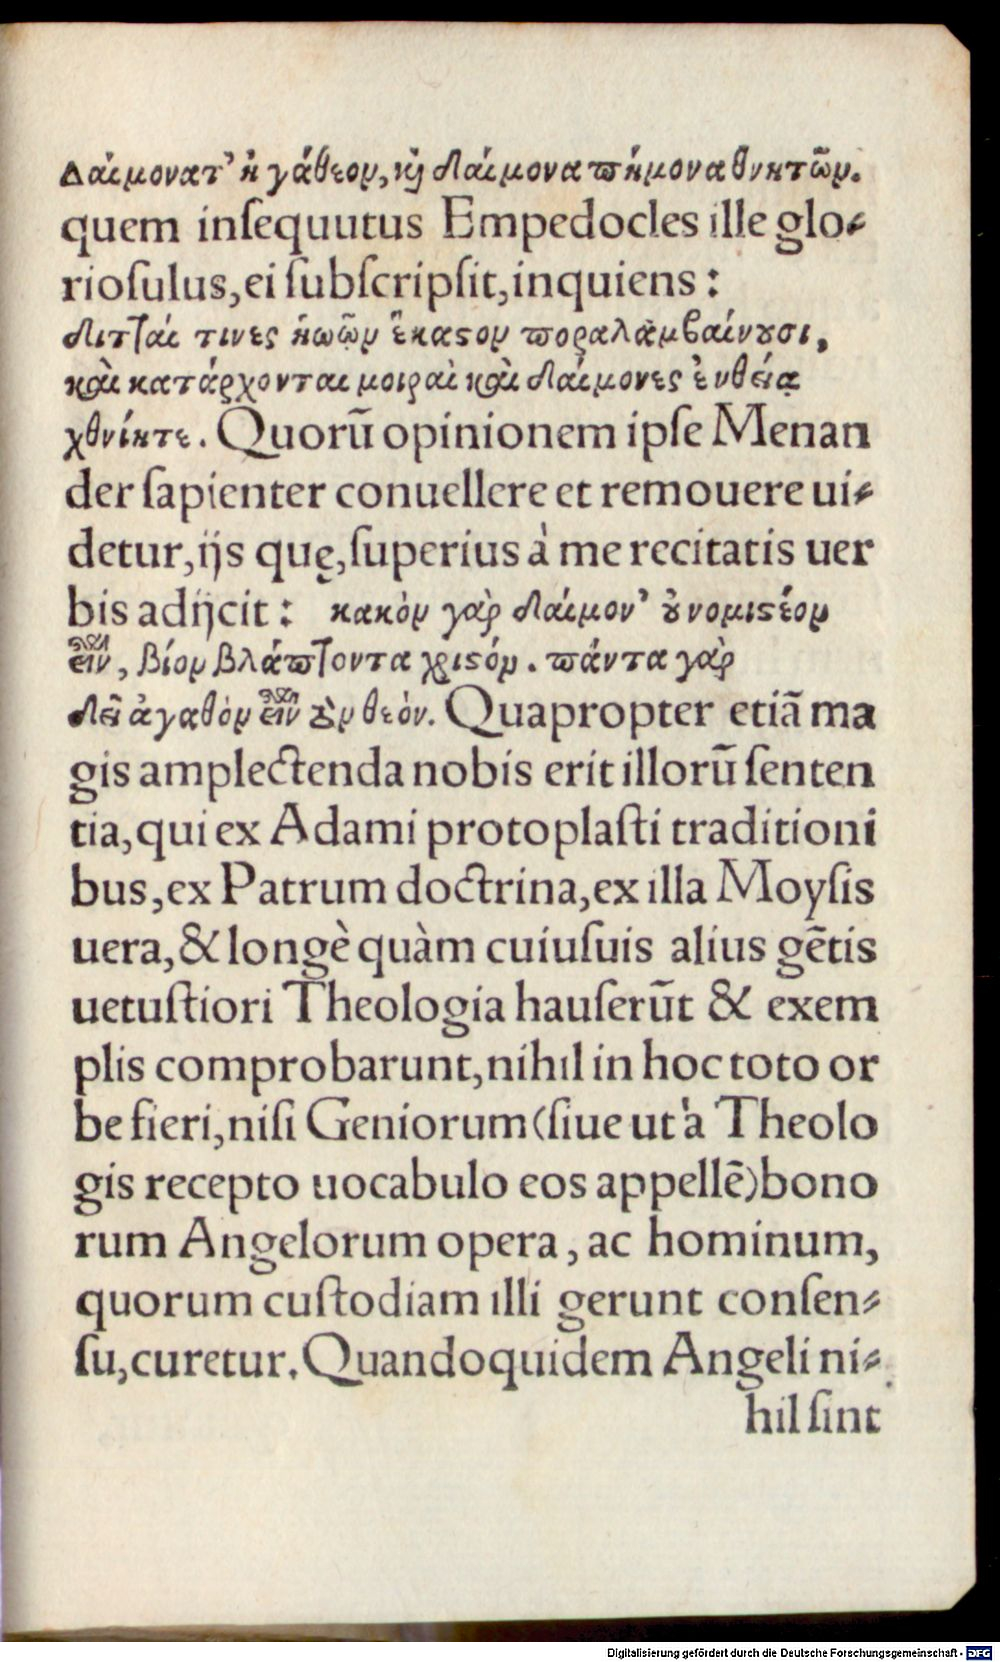 Δαίμονατ’ ἠ γάθεον, κỳ δαίμονα πήμονα θνητῶν.
quem inſequutus Empedocles ille glo⸗
rioſulus, ei ſubſcripſit, inquiens :
διτ]αί τινες ἡωῶν ἕκαϛον ποραλαμβαίνȣσι,
καὶ κατάρχονται μοιραὶ καὶ δαίμονες ἐνθεία
χθνίητε. Quorū opinionem ipſe Menan
der ſapienter conuellere et remouere ui⸗
detur, ijs quę, ſuperius à me recitatis uer
bis adijcit : κακὸν γὰρ δαίμον’ ȣ νομιϛέον
εἶν, βίον βλάπ]οντα χριϛόν. πάντα γὰρ
δεῖ ἀγαθὸν εἶν θεόν. Quapropter etiā ma
gis amplectenda nobis erit illorū ſenten
tia, qui ex Adami protoplaſti traditioni
bus, ex Patrum doctrina, ex illa Moyſis
uera, & longè quàm cuiuſuis alius gētis
uetuſtiori Theologia hauſerūt & exem
plis comprobarunt, nihil in hoc toto or
be fieri, niſi Geniorum (ſiue ut à Theolo
gis recepto uocabulo eos appellē) bono
rum Angelorum opera, ac hominum,
quorum cuſtodiam illi gerunt conſen⸗
ſu, curetur. Quandoquidem Angeli ni⸗
hil ſint
Digitalisierung gefördert durch die Deutsche Forschungsgemeinschaft - DFG